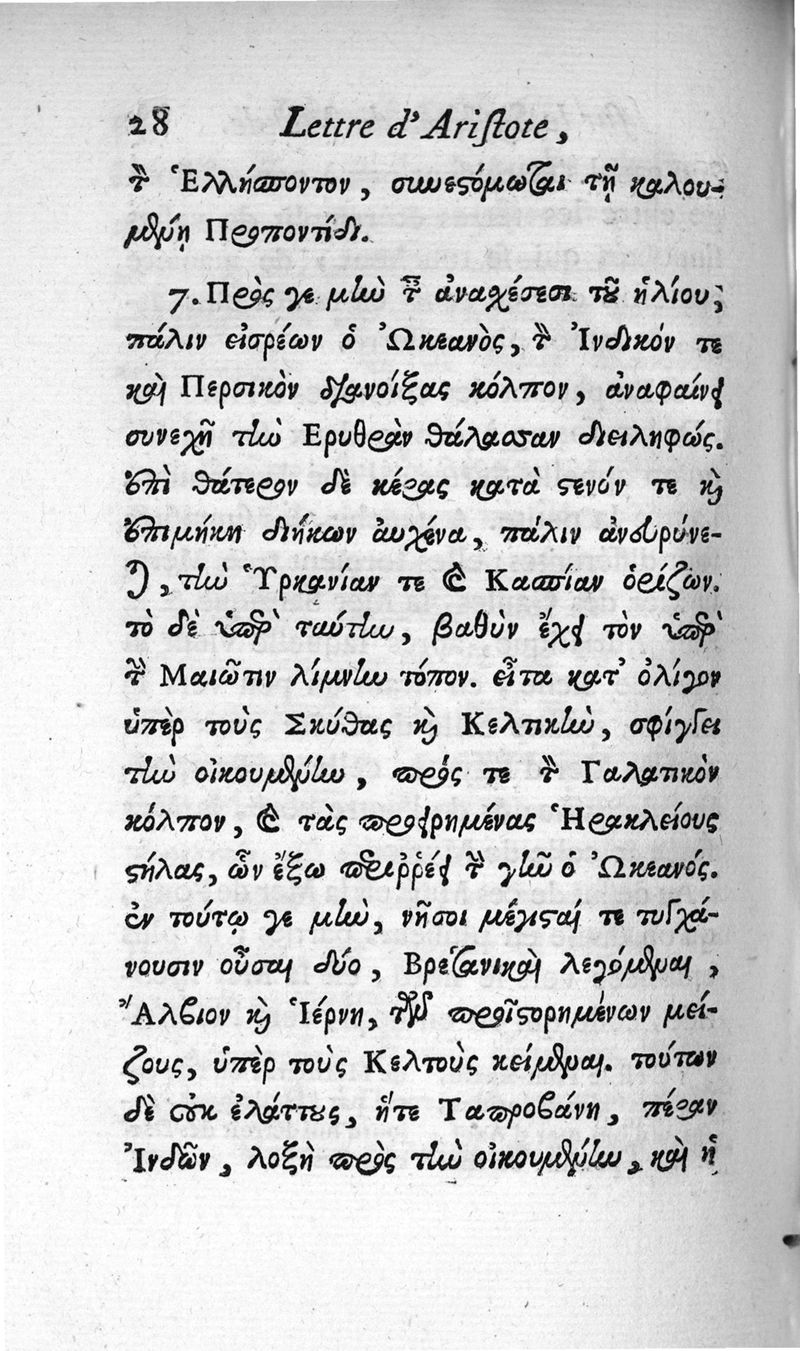 28 Lettre d'Ariſtote,
τὸν Ἑλλήσποντον, συνεστόμωται τῇ καλου-
μένῃ Προποντίδι.
7. Πρός γε μὴν τὰς ἀναχέσεσι τοῦ ἡλίου,
πάλιν εἰσρέων ὁ Ὠκεανὸς, τὸν Ἰνδικόν τε
καὶ Περσικὸν διανοίξας κόλπον, ἀναφαίνει
συνεχῆ τὴν Ερυθρὰν θάλασσαν διειληφώς.
ἐπὶ θάτερον δὲ κέρας κατὰ στενόν τε καὶ
ἐπιμήκη διήκων ἀυχένα, πάλιν ἀνευρύνε-
ται, τὴν Ὑρκανίαν τε καὶ Κασπίαν ὁρίζων.
τὸ δὲ ὑπὲρ ταύτην, βαθὺν ἔχει τὸν ὑπὲρ
τὴν Μαιῶτιν λίμνην τόπον. εἶτα κατ' ὀλίγον
ὑπὲρ τοὺς Σκύθας καὶ Κελτικὴν, σφίγγει
τὴν οἰκουμένην, πρός τε τὸν Γαλατικὸν
κόλπον, καὶ τὰς προειρημένας Ἡρακλείους
στήλας, ὧν ἔξω περιῤῥέει τὴν γῆν ὁ Ὠκεανός.
ἐν τούτῳ γε μὴν, νῆσοι μέγισταί τε τυγχά-
νουσιν οὖσαι δύο, Βρετανικαὶ λεγόμεναι,
Ἄλβιον καὶ Ἰέρνη, τῶν προϊστορημένων μεί-
ζους, ὑπὲρ τοὺς Κελτοὺς κείμεναι. τούτων
δὲ οὐκ ἐλάττους, ἥτε Ταπροβάνη, πέραν
Ἰνδῶν, λοξὴ πρὸς τὴν οἰκουμένην, καὶ ἡ